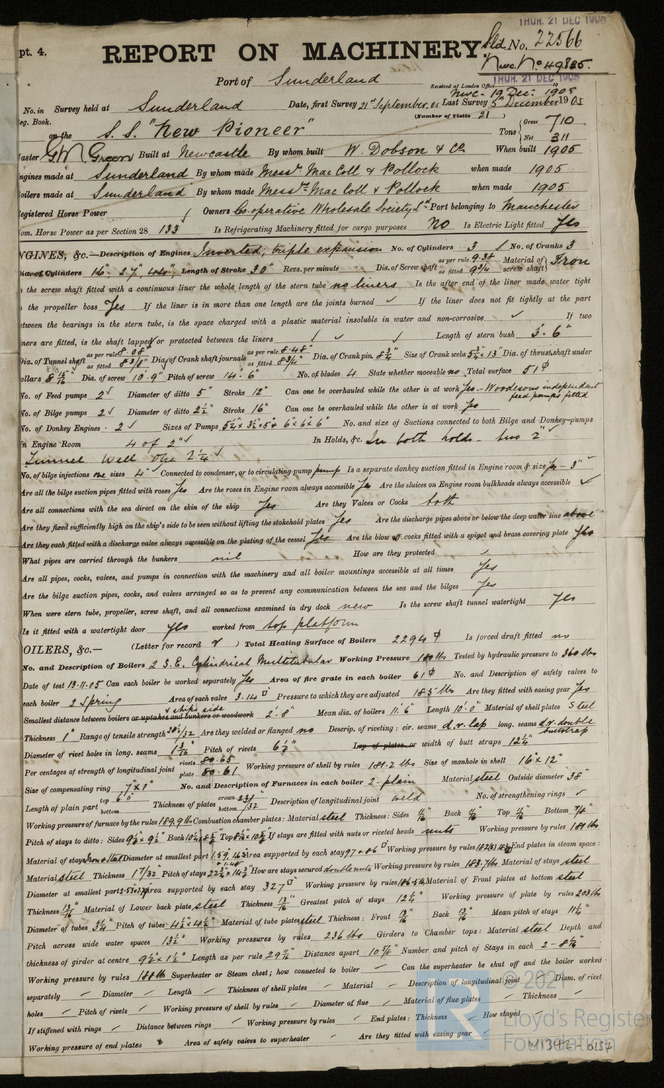 THUR. 21 DEC 1905
pt. 4.
REPORT ON MACHINERY.
Sld. No. 22566
Nwc. No 49885.
Port of Sunderland
Received at London Office THUR. 21 DEC 1905
Nwc. 19 Dec. 1905
No. in Survey held at Sunderland Date, first Survey 21st September 05 Last Survey 5th December 1905
eg. Book. (Number of Visits 21)
on the S.S. "New Pioneer" Tons Gross 710 Net 311
aster G. W. Green Built at Newcastle By whom built W. Dobson & Co When built 1905
ngines made at Sunderland By whom made Messrs MacColl & Pollock when made 1905
oilers made at Sunderland By whom made Messrs MacColl & Pollock when made 1905
egistered Horse Power Owners Co-operative Wholesale Society Ld Port belonging to Manchester
om. Horse Power as per Section 28 133 Is Refrigerating Machinery fitted for cargo purposes No Is Electric Light fitted Yes
NGINES, &c.—Description of Engines Inverted, triple expansion No. of Cylinders 3 No. of Cranks 3
Dia. of Cylinders 16" 27" Length of Stroke 30" Revs. per minute Dia. of Screw shaft as per rule as fitted 9 3/4 Material of screw shaft Iron
s the screw shaft fitted with a continuous liner the whole length of the stern tube no liners Is the after end of the liner made water tight
the propeller boss Yes If the liner is in more than one length are the joints burned If the liner does not fit tightly at the part
etween the bearings in the stern tube, is the space charged with a plastic material insoluble in water and non-corrosive If two
ners are fitted, is the shaft lapped or protected between the liners Length of stern bush 3'-6"
Dia. of Tunnel shaft as per rule as fitted Dia. of Crank shaft journals as per rule 8.48" as fitted Dia. of Crank pin Size of Crank webs Dia. of thrust shaft under
ollars Dia. of screw 10'-9" Pitch of screw 14'-6" No. of blades 4 State whether moveable no Total surface 51
No. of Feed pumps 2 Diameter of ditto 5" Stroke 12" Can one be overhauled while the other is at work Yes - Woodesons independent feed pumps fitted
No. of Bilge pumps 2 Diameter of ditto 2 1/2" Stroke 16" Can one be overhauled while the other is at work Yes
No. of Donkey Engines 2 Sizes of Pumps No. and size of Suctions connected to both Bilge and Donkey pumps
n Engine Room 4 of 2" In Holds, &c. In both holds - two 2"
Tunnel Well One 2 1/4
No. of bilge injections one sizes 4" Connected to condenser, or to circulating pump pump Is a separate donkey suction fitted in Engine room & size Yes - 3"
Are all the bilge suction pipes fitted with roses Yes Are the roses in Engine room always accessible Yes Are the sluices on Engine room bulkheads always accessible
Are all connections with the sea direct on the skin of the ship Yes Are they Valves or Cocks both
Are they fixed sufficiently high on the ship's side to be seen without lifting the stokehold plates Yes Are the discharge pipes above or below the deep water line above
Are they each fitted with a discharge valve always accessible on the plating of the vessel Yes Are the blow off cocks fitted with a spigot and brass covering plate Yes
What pipes are carried through the bunkers nil How are they protected
Are all pipes, cocks, valves, and pumps in connection with the machinery and all boiler mountings accessible at all times Yes
Are the bilge suction pipes, cocks, and valves arranged so as to prevent any communication between the sea and the bilges Yes
When were stern tube, propeller, screw shaft, and all connections examined in dry dock new Is the screw shaft tunnel watertight Yes
Is it fitted with a watertight door Yes worked from top platform
OILERS, &c.— (Letter for record r) Total Heating Surface of Boilers 2294 Is forced draft fitted no
No. and Description of Boilers 2 S.E. Cylindrical Multitubular Working Pressure 180 lbs Tested by hydraulic pressure to 360 lbs
Date of test 13-11-05 Can each boiler be worked separately Yes Area of fire grate in each boiler 61 No. and Description of safety valves to
each boiler 2 Spring Area of each valve 3.14 Pressure to which they are adjusted 185 lbs Are they fitted with easing gear Yes
Smallest distance between boilers or uptakes and bunkers or woodwork & ships side 2'.0" Mean dia. of boilers 11'.6" Length 10'.0" Material of shell plates Steel
Thickness 1" Range of tensile strength 28 1/2/32 Are they welded or flanged no Descrip. of riveting: cir. seams d.r. lap long. seams d.r. double buttstrap
Diameter of rivet holes in long. seams Pitch of rivets Lap of plates or width of butt straps 12 1/4"
Per centages of strength of longitudinal joint rivets 80.65 plate 80.61 Working pressure of shell by rules 181.2 lbs Size of manhole in shell 16" x 12"
Size of compensating ring 7" x 1" No. and Description of Furnaces in each boiler 2-plain Material steel Outside diameter 38"
Length of plain part top 6'0" bottom Thickness of plates crown bottom Description of longitudinal joint weld No. of strengthening rings
Working pressure of furnace by the rules 189.9 lbs Combustion chamber plates: Material steel Thickness: Sides Back Top Bottom
Pitch of stays to ditto: Sides 9 1/2 x 9 1/2 Back Top If stays are fitted with nuts or riveted heads nuts Working pressure by rules 181 lbs
Material of stays Iron & Steel Diameter at smallest part Area supported by each stay Working pressure by rules End plates in steam space:
Material steel Thickness 17/32 Pitch of stays How are stays secured double nuts Working pressure by rules 183.7 lbs Material of stays steel
Diameter at smallest part Area supported by each stay 327 Working pressure by rules Material of Front plates at bottom steel
Thickness Material of Lower back plate steel Thickness Greatest pitch of stays 12 1/4" Working pressure of plate by rules 203 lbs
Diameter of tubes 3 1/4" Pitch of tubes 4 1/2 x 4 1/2 Material of tube plates steel Thickness: Front Back Mean pitch of stays
Pitch across wide water spaces 13 1/2" Working pressures by rules 236 lbs Girders to Chamber tops: Material steel Depth and
thickness of girder at centre Length as per rule Distance apart Number and pitch of Stays in each
Working pressure by rules 188 lb Superheater or Steam chest; how connected to boiler Can the superheater be shut off and the boiler worked
separately Diameter Length Thickness of shell plates Material Description of longitudinal joint Diam. of rivet
holes Pitch of rivets Working pressure of shell by rules Diameter of flue Material of flue plates Thickness
If stiffened with rings Distance between rings Working pressure by rules End plates: Thickness How stayed
Working pressure of end plates Area of safety valves to superheater Are they fitted with easing gear
© 2021
Lloyd's Register
Foundation
W1342-0157